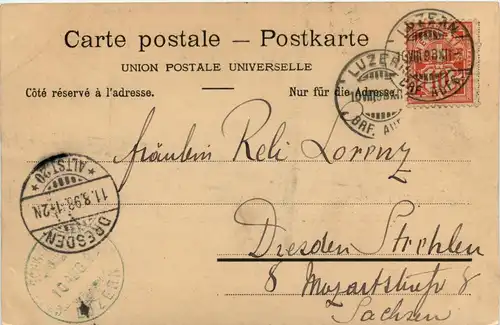 Carte postale — Postkarte
UNION POSTALE UNIVERSELLE
Côté réservé à l'adresse. Nur für die Adresse.
LUZERN
LUZERN
BRF. AUFG.
10
Fräulein Reli Lorenz
ALTST. 20
11.8.98. 1-2N.
DRESDEN
Dresden Strehlen
8 Mozartstraße 8
Sachsen